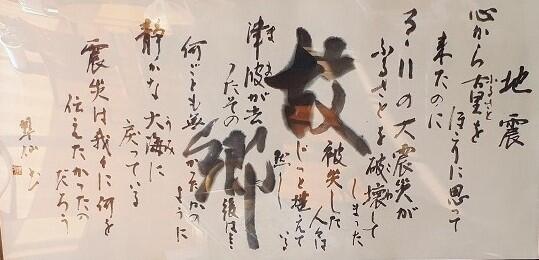 地震
心から古里を
ふるさと
ほこりに思って
来たのに
3・11の大震災が
ふるさとを破壊して
しまった
被災した
人々は
じっと堪えて
いる
故郷
津波が去
ったその後は
何ごとも無
かったかの
ように
静かな大海に
うみ
戻っている
震災は我々に何を
伝えたかったの
だろう